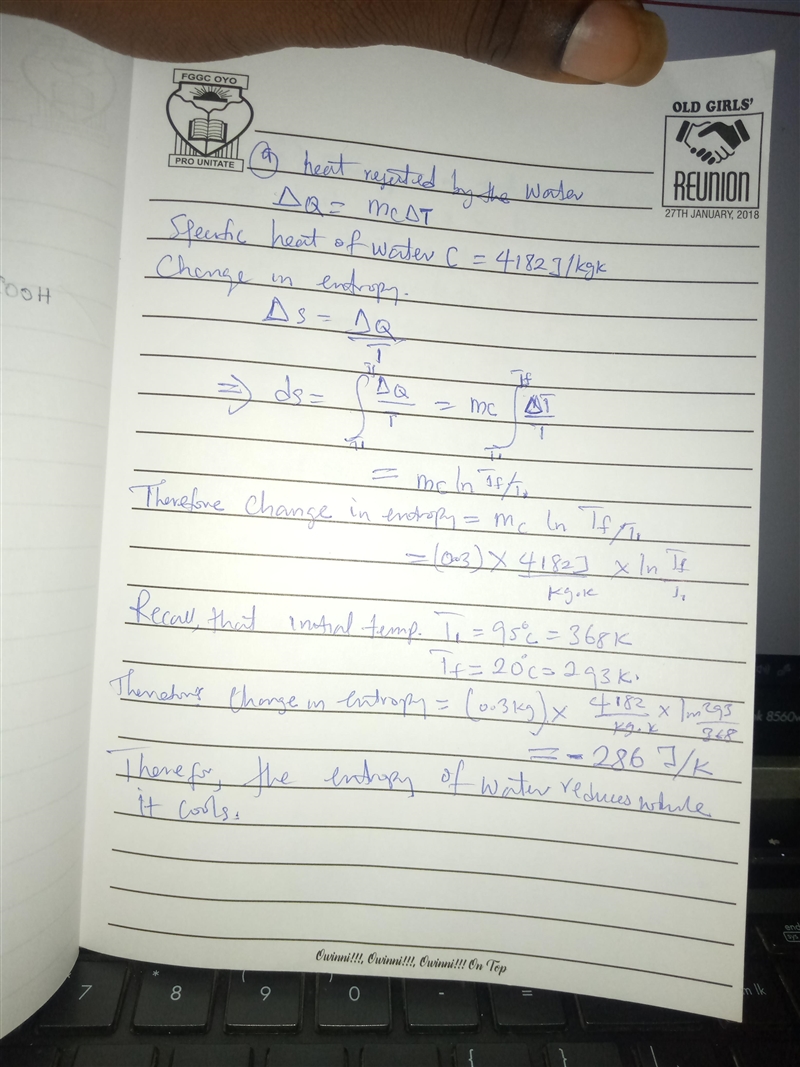 FGGC OYO
PRO UNITATE
OLD GIRLS'
REUNION
27TH JANUARY, 2018
(a) heat rejected by the water
ΔQ = mcΔT
Specific heat of water C = 4182J/kgk
Change in entropy.
Δs = ΔQ/T
⇒ ds = ∫T1^Tf ΔQ/T = mc ∫T1^Tf ΔT/T
= mc ln Tf/T1
Therefore change in entropy = mc ln Tf/T1
= (0.3) × 4182J/kg.k × ln Tf/T1
Recall, that initial temp. T1 = 95°C = 368K
Tf = 20°C = 293K.
Therefore change in entropy = (0.3kg) × 4182/kg.k × ln 293/368
= -286 J/K
Therefr, the entropy of water reduces while
it cools.
Owinni!!!, Owinni!!!, Owinni!!! On Top
7
* 8
( 9
) 0
-
=
{ [
} ]
k 8560w